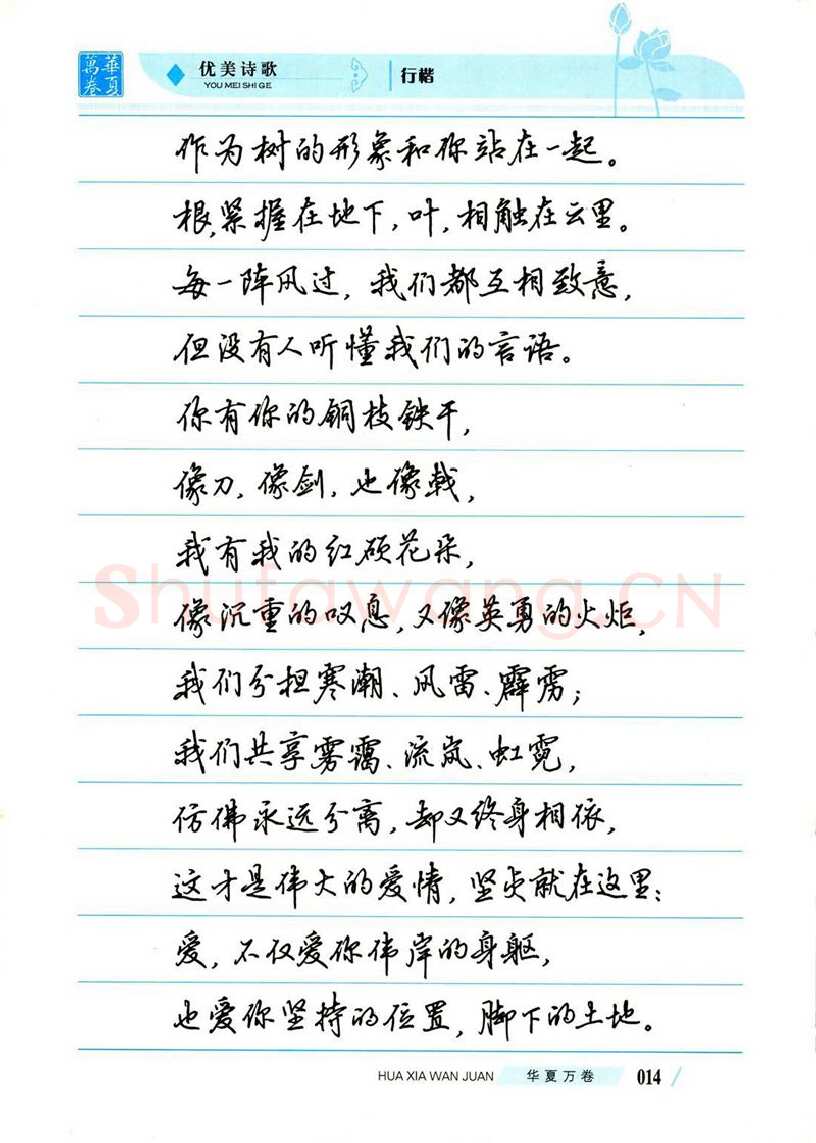 華夏萬卷
优美诗歌
YOU MEI SHI GE
行楷
作为树的形象和你站在一起。
根,紧握在地下,叶,相触在云里。
每一阵风过,我们都互相致意,
但没有人听懂我们的言语。
你有你的铜枝铁干,
像刀,像剑,也像戟,
我有我的红硕花朵,
像沉重的叹息,又像英勇的火炬,
我们分担寒潮、风雷、霹雳;
我们共享雾霭、流岚、虹霓,
仿佛永远分离,却又终身相依,
这才是伟大的爱情,坚贞就在这里:
爱,不仅爱你伟岸的身躯,
也爱你坚持的位置,脚下的土地。
Shufawang.CN
HUA XIA WAN JUAN 华夏万卷 014